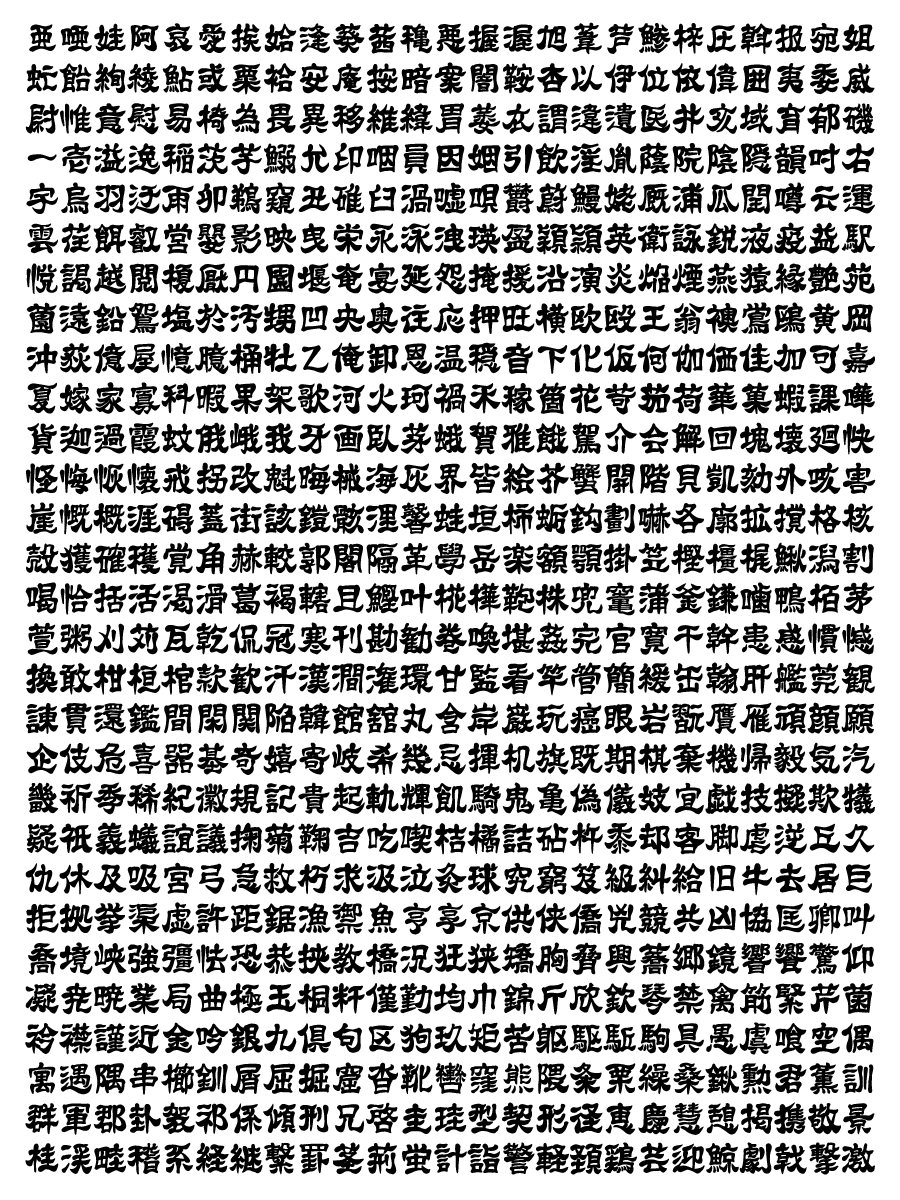 亜唖娃阿哀愛挨姶逢葵茜穐悪握渥旭葦芦鯵梓圧斡扱宛姐
虻飴絢綾鮎或粟袷安庵按暗案闇鞍杏以伊位依偉囲夷委威
尉惟意慰易椅為畏異移維緯胃萎衣謂違遺医井亥域育郁磯
一壱溢逸稲茨芋鰯允印咽員因姻引飲淫胤蔭院陰隠韻吋右
宇烏羽迂雨卯鵜窺丑碓臼渦嘘唄欝蔚鰻姥厩浦瓜閏噂云運
雲荏餌叡営嬰影映曳栄永泳洩瑛盈穎頴英衛詠鋭液疫益駅
悦謁越閲榎厭円園堰奄宴延怨掩援沿演炎焔煙燕猿縁艶苑
薗遠鉛鴛塩於汚甥凹央奥往応押旺横欧殴王翁襖鴬鴎黄岡
沖荻億屋憶臆桶牡乙俺卸恩温穏音下化仮何伽価佳加可嘉
夏嫁家寡科暇果架歌河火珂禍禾稼箇花苛茄荷華菓蝦課嘩
貨迦過霞蚊俄峨我牙画臥芽蛾賀雅餓駕介会解回塊壊廻快
怪悔恢懐戒拐改魁晦械海灰界皆絵芥蟹開階貝凱劾外咳害
崖慨概涯碍蓋街該鎧骸浬馨蛙垣柿蛎鈎劃嚇各廓拡撹格核
殻獲確穫覚角赫較郭閣隔革學岳楽額顎掛笠樫橿梶鰍潟割
喝恰括活渇滑葛褐轄且鰹叶椛樺鞄株兜竃蒲釜鎌噛鴨栢茅
萱粥刈苅瓦乾侃冠寒刊勘勧巻喚堪姦完官寛干幹患感慣憾
換敢柑桓棺款歓汗漢澗潅環甘監看竿管簡緩缶翰肝艦莞観
諌貫還鑑間閑関陥韓館舘丸含岸巌玩癌眼岩翫贋雁頑顔願
企伎危喜器基奇嬉寄岐希幾忌揮机旗既期棋棄機帰毅気汽
畿祈季稀紀徽規記貴起軌輝飢騎鬼亀偽儀妓宜戯技擬欺犠
疑祇義蟻誼議掬菊鞠吉吃喫桔橘詰砧杵黍却客脚虐逆丘久
仇休及吸宮弓急救朽求汲泣灸球究窮笈級糾給旧牛去居巨
拒拠挙渠虚許距鋸漁禦魚亨享京供侠僑兇競共凶協匡卿叫
喬境峡強彊怯恐恭挟教橋況狂狭矯胸脅興蕎郷鏡響饗驚仰
凝尭暁業局曲極玉桐粁僅勤均巾錦斤欣欽琴禁禽筋緊芹菌
衿襟謹近金吟銀九倶句区狗玖矩苦躯駆駈駒具愚虞喰空偶
寓遇隅串櫛釧屑屈掘窟沓靴轡窪熊隈粂栗繰桑鍬勲君薫訓
群軍郡卦袈祁係傾刑兄啓圭珪型契形径恵慶慧憩掲携敬景
桂渓畦稽系経継繋罫茎荊蛍計詣警軽頚鶏芸迎鯨劇戟撃激